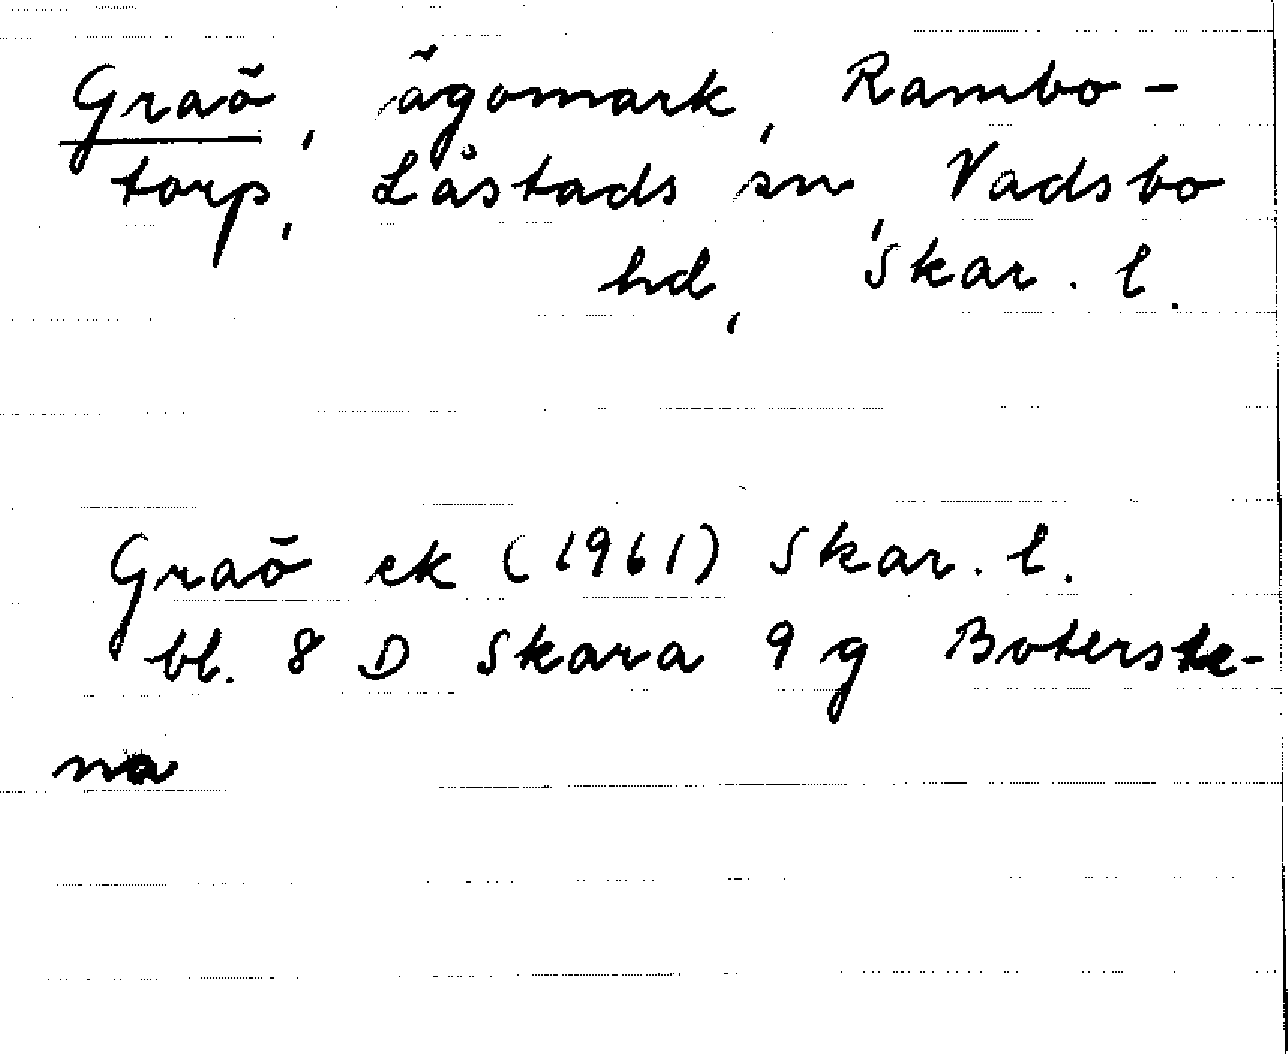 Graö, ägomark, Rambo-
torp, Låstads sn, Vadsbo
hd, Skar. l.
Graö ek (1961) Skar. l.
bl. 8 D Skara 9 g Boterste-
na